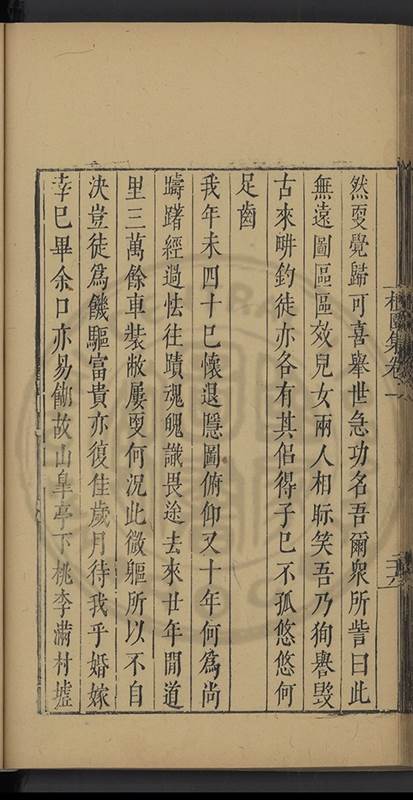 然更覺歸可喜舉世急功名吾爾衆所訾曰此
無遠圖區區效兒女兩人相眎笑吾乃狥譽毀
古來畊釣徒亦各有其侣得子巳不孤悠悠何
足齒
我年未四十巳懷退隱圖俯仰又十年何爲尚
躊躇經過怯往蹟魂魄讖畏途去來廿年間道
里三萬餘車裝敝屢更何况此微軀所以不自
决豈徒爲饑驅富貴亦復佳歲月待我乎婚嫁
幸巳畢余口亦易餬故山臯亭下桃李滿村墟
集卷一
二十六